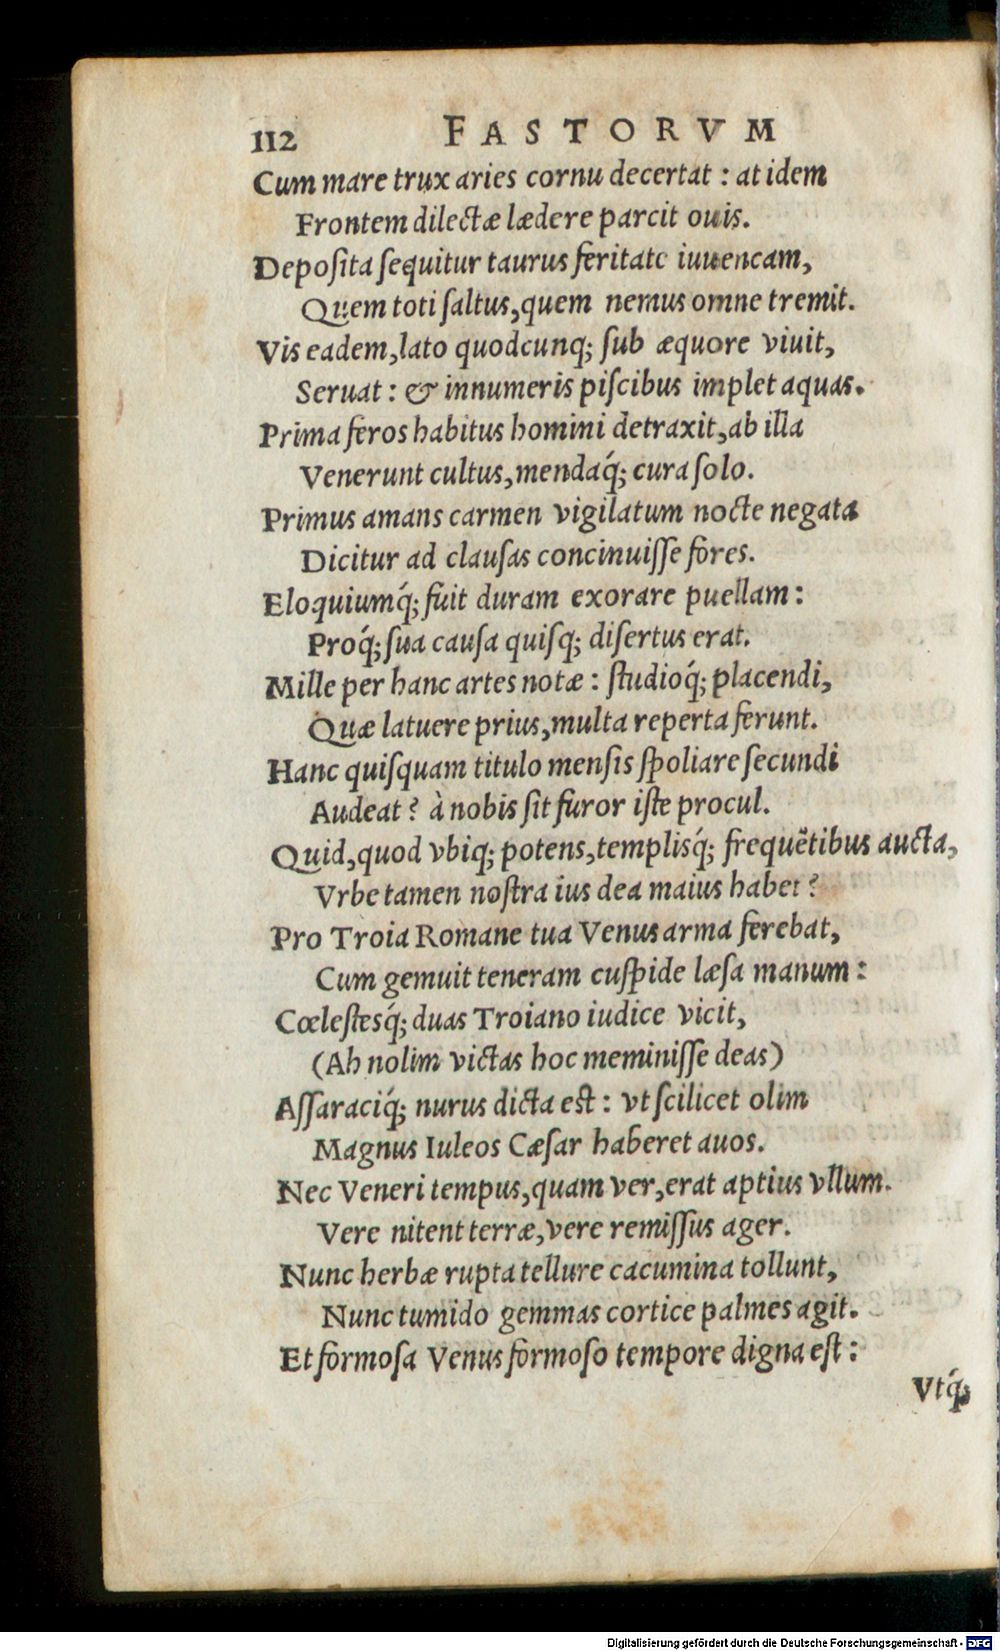 112 FASTORVM
Cum mare trux aries cornu decertat : at idem
Frontem dilectæ lædere parcit ouis.
Deposita sequitur taurus feritate iuuencam,
Quem toti saltus, quem nemus omne tremit.
Vis eadem, lato quodcunq; sub æquore viuit,
Seruat : & innumeris piscibus implet aquas.
Prima feros habitus homini detraxit, ab illa
Venerunt cultus, mendaq́; cura solo.
Primus amans carmen vigilatum nocte negata
Dicitur ad clausas concinuisse fores.
Eloquiumq́; fuit duram exorare puellam :
Proq́; sua causa quisq; disertus erat.
Mille per hanc artes notæ : studioq́; placendi,
Quæ latuere prius, multa reperta ferunt.
Hanc quisquam titulo mensis spoliare secundi
Audeat ? à nobis sit furor iste procul.
Quid, quod vbiq; potens, templisq́; frequẽtibus aucta,
Vrbe tamen nostra ius dea maius habet ?
Pro Troia Romane tua Venus arma ferebat,
Cum gemuit teneram cuspide læsa manum :
Cœlestesq́; duas Troiano iudice vicit,
(Ah nolim victas hoc meminisse deas)
Assaraciq́; nurus dicta est : vt scilicet olim
Magnus Iuleos Cæsar haberet auos.
Nec Veneri tempus, quam ver, erat aptius vllum.
Vere nitent terræ, vere remissus ager.
Nunc herbæ rupta tellure cacumina tollunt,
Nunc tumido gemmas cortice palmes agit.
Et formosa Venus formoso tempore digna est :
Vtq́;
Digitalisierung gefördert durch die Deutsche Forschungsgemeinschaft - DFG